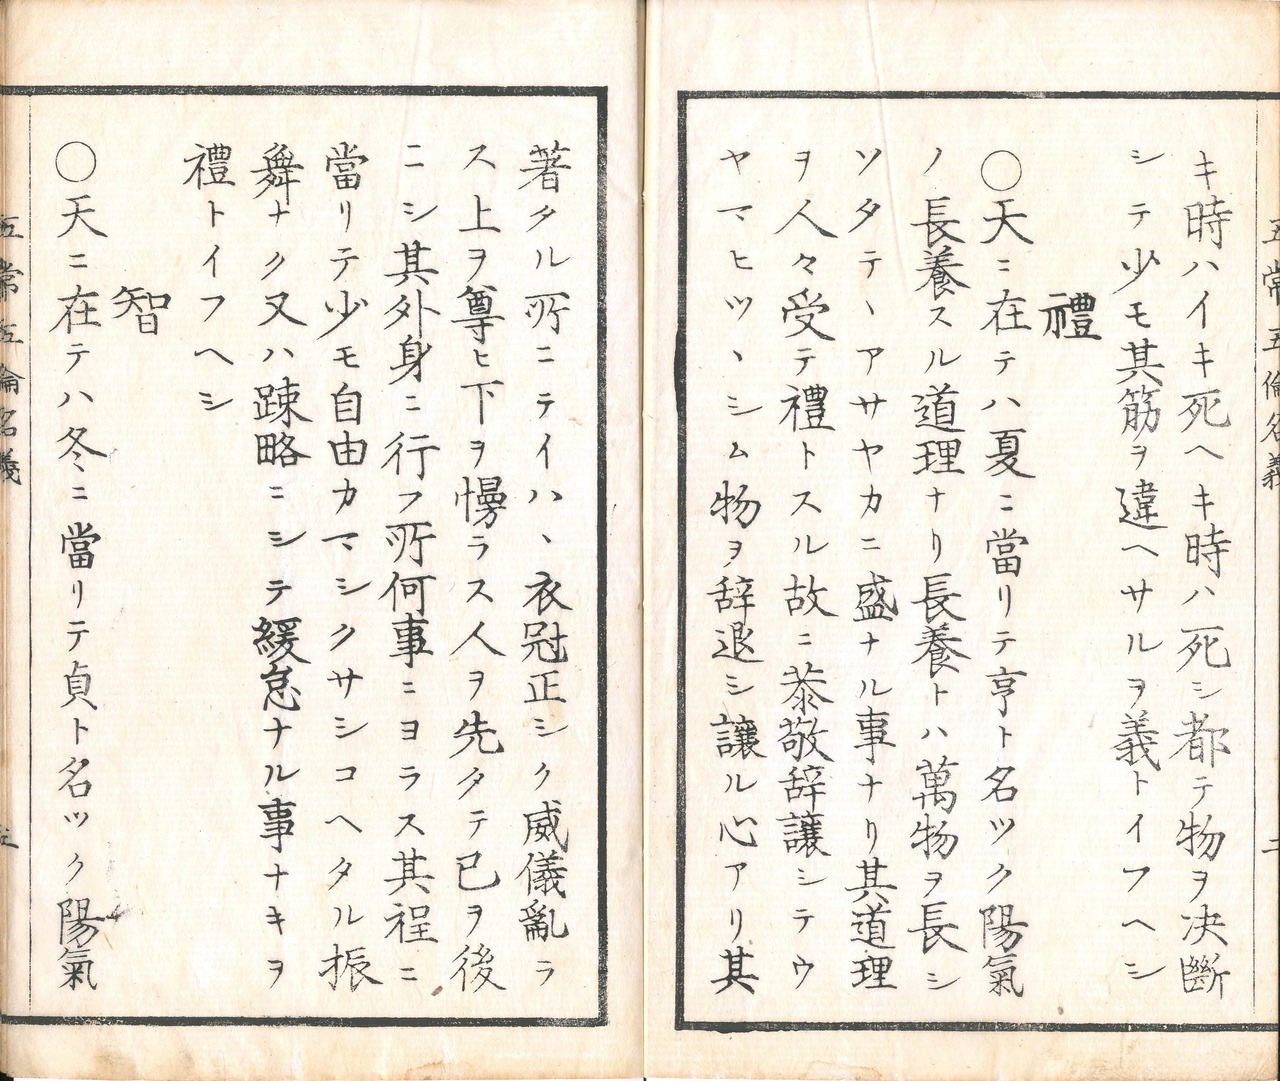 五常五倫名義
二
キ時ハイキ死ヘキ時ハ死シ都テ物ヲ決斷
シテ少モ其筋ヲ違ヘサルヲ義トイフヘシ
禮
〇天ニ在テハ夏ニ當リテ亨ト名ツク陽氣
ノ長養スル道理ナリ長養トハ萬物ヲ長シ
ソタテヽアサヤカニ盛ナル事ナリ其道理
ヲ人々受テ禮トスル故ニ恭敬辞讓シテウ
ヤマヒツヽシム物ヲ辞退シ讓ル心アリ其
著タル所ニテイハヽ衣冠正シク威儀亂ラ
ス上ヲ尊ヒ下ヲ慢ラス人ヲ先タテ己ヲ後
ニシ其外身ニ行フ所何事ニヨラス其程ニ
當リテ少モ自由カマシクサシコヘタル振
舞ナク又ハ踈略ニシテ緩怠ナル事ナキヲ
禮トイフヘシ
智
〇天ニ在テハ冬ニ當リテ貞ト名ツク陽氣
五常五倫名義